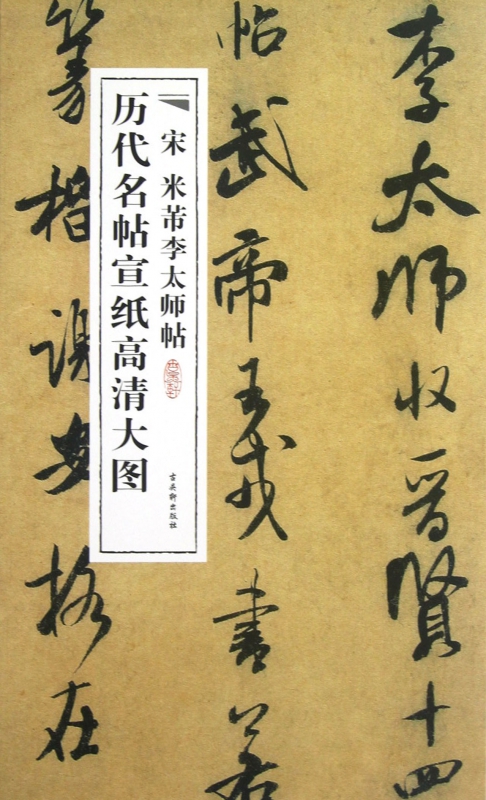 李太师收晋贤十四
帖武帝王戎书若
篆楷谢安格在
宋 米芾李太师帖
历代名帖宣纸高清大图
古吴轩出版社